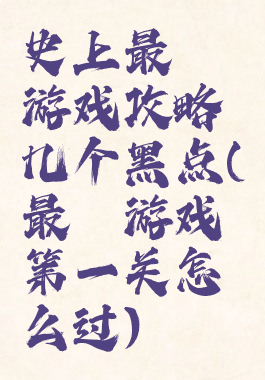 史上最
游戏攻略
几个黑点(
最 游戏
第一关怎
么过)